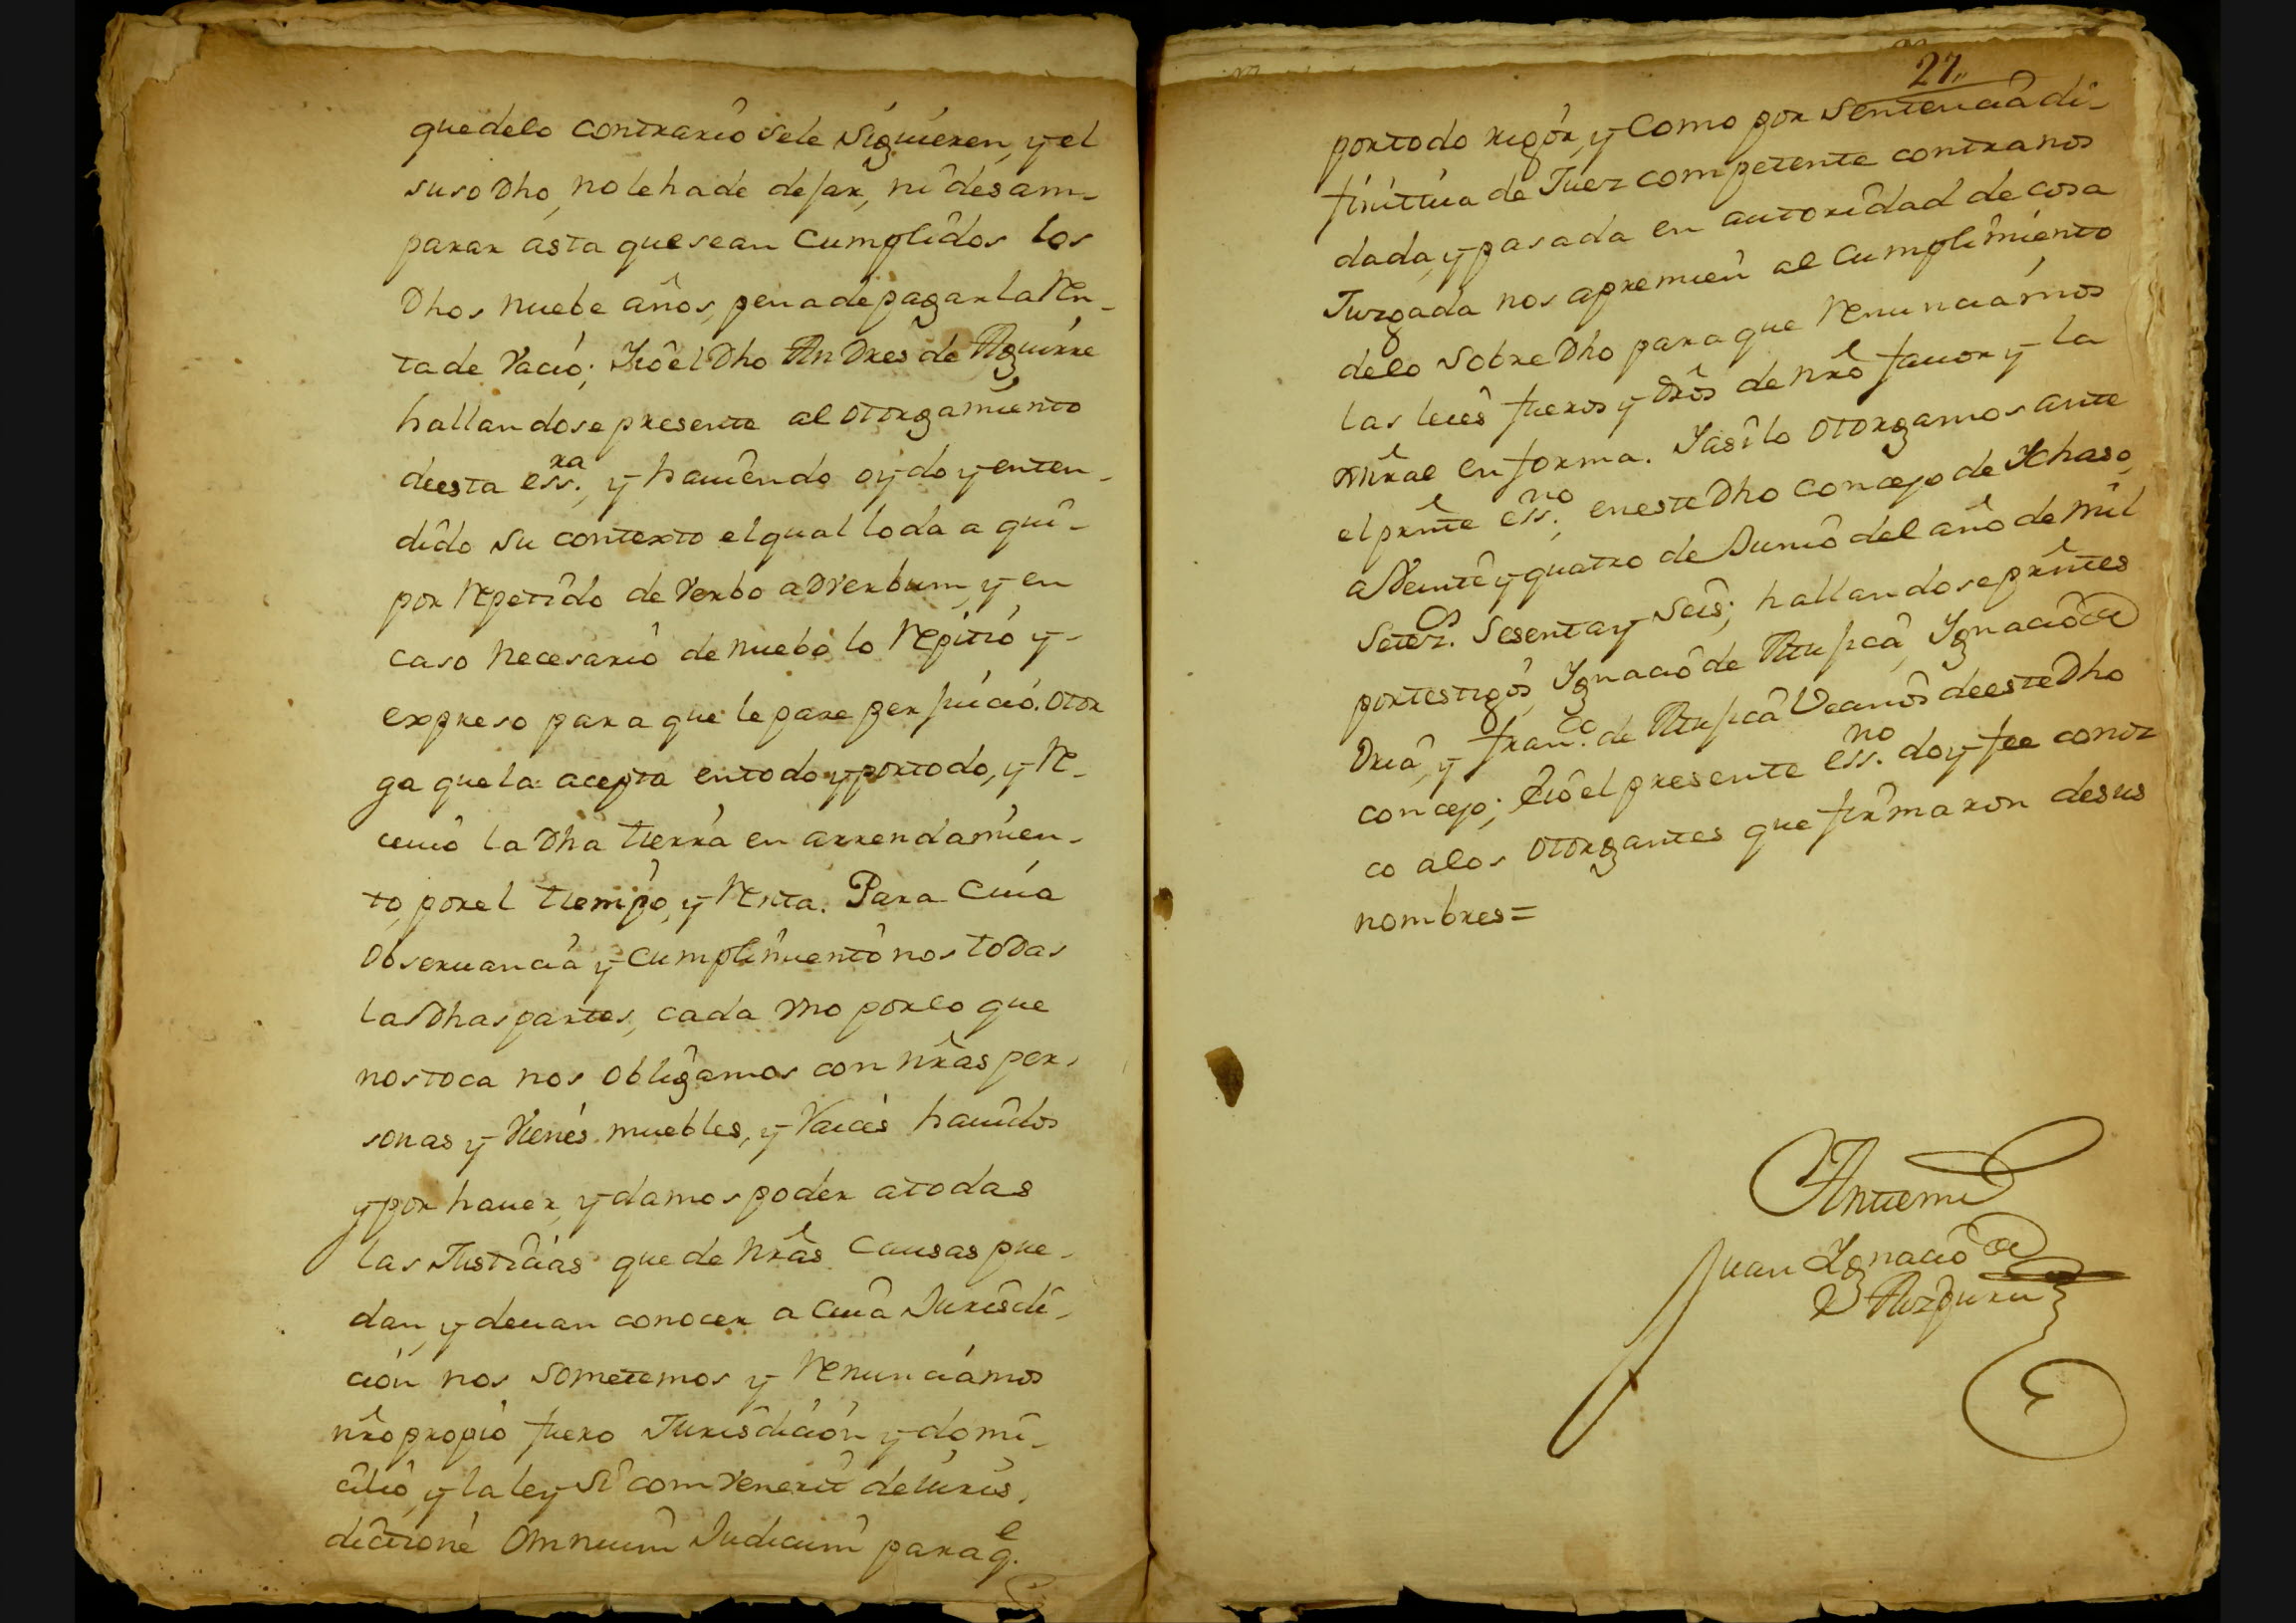 quedelo contrario sele siguieren, y el
suso Dho, no le ha de dejar, ni desam-
parar asta que sean Cumplidos los
Dhos nuebe años, pena de pagar la Ren-
ta de Vacio; Yió el Dho Andres de Aguirre
hallandose presente al otorgamiento
deesta ess.ra, y haviendo oydo y enten-
dido su contexto el qual lo da a qui-
por Repetido de Verbo adverbum, y en
caso necesario de nuebo lo Repitió y-
expreso para que le pare perjuicio. otor
ga que la acepta entodo y portodo, y Re-
cevió la Dha tierra en arrendamien-
to, por el tiempo, y Renta. Para Cuia
observancia y cumplimiento nos todas
las Dhas partes, cada vno por lo que
nos toca nos obligamos con nras per-
sonas y Vienes muebles, y Raices havidos
y por haver, y damos poder atodas
las Justicias que de nras Causas pue-
dan, y devan conocer a Cuia Jurisdi-
ción nos sometemos y Renunciamos
nro propio fuero Jurisdición y domi-
cilio, y la ley si comvenerit de iuris-
dictione omnium Judicum para q.e
27
portodo rigór, y Como por sentencia di-
finitiva de Juez competente contra nos
dada, y pasada en autoridad de cosa
Juzgada nos apremien al Cumplimiento
delo sobre Dho para que Renunciamos
las leies fueros y Dros de nro favor y la
xniral en forma. Y asi lo otorgamos ante
el prnte ess.no, en este Dho concejo de Ychaso,
a Veinte y quatro de Junio del año de mil
setez.os sesenta y seis; hallandose prntes
portestigos, Ygnacio de Atujca, Ygnacio de
Dria, y fran.co de Atujca Vecinos deeste Dho
concejo; Eió el presente ess.no doy fee conoz
co alos otorgantes que firmaron desus
nombres=
Antemi
Juan Ygnacio de
Auzquru